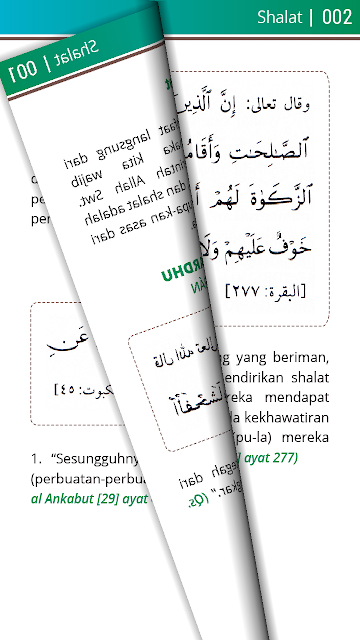 Shalat | 002
Shalat | 001
وقال تعالى: إِنَّ ٱلَّذِينَ
ٱلصَّـٰلِحَـٰتِ وَأَقَامُ
ٱلزَّكَوٰةَ لَهُمْ أَ
خَوْفٌ عَلَيْهِمْ وَلَا
[البقرة: ٢٧٧]
aat langsung dari
aka kita wajib
intah Allah Swt.
dan shalat adalah
upa-kan asas dari
RDHU
عَنِ
كبوت: ٤٥]
g yang beriman,
endirikan shalat
reka mendapat
a kekhawatiran
(pu-la) mereka
] ayat 277)
1. “Sesungguhny
(perbuatan-perbu
al Ankabut [29] ayat
egah dari
gkar.” (Qs.